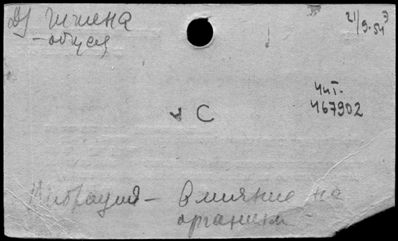 Dj гигиена
- общая
21/9-54 э
с С
Чит.
467902
Вибрация - влияние на
организм